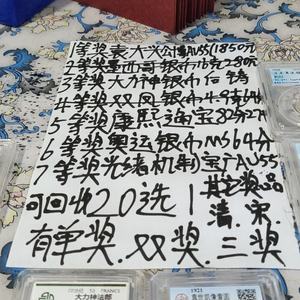 1等奖袁大头公博AU55(1850元
2等奖墨西哥银币16克280元
3等奖大力神银币后铸
4等奖双凤银币
5等奖康熙通宝82分27
6等奖奥运银币MS64分
7等奖光绪机制宝广AU55
可回收20选1
其它奖品
清.宋.
有单奖.双奖.三奖
50 FRANCS
大力神法郎
1921